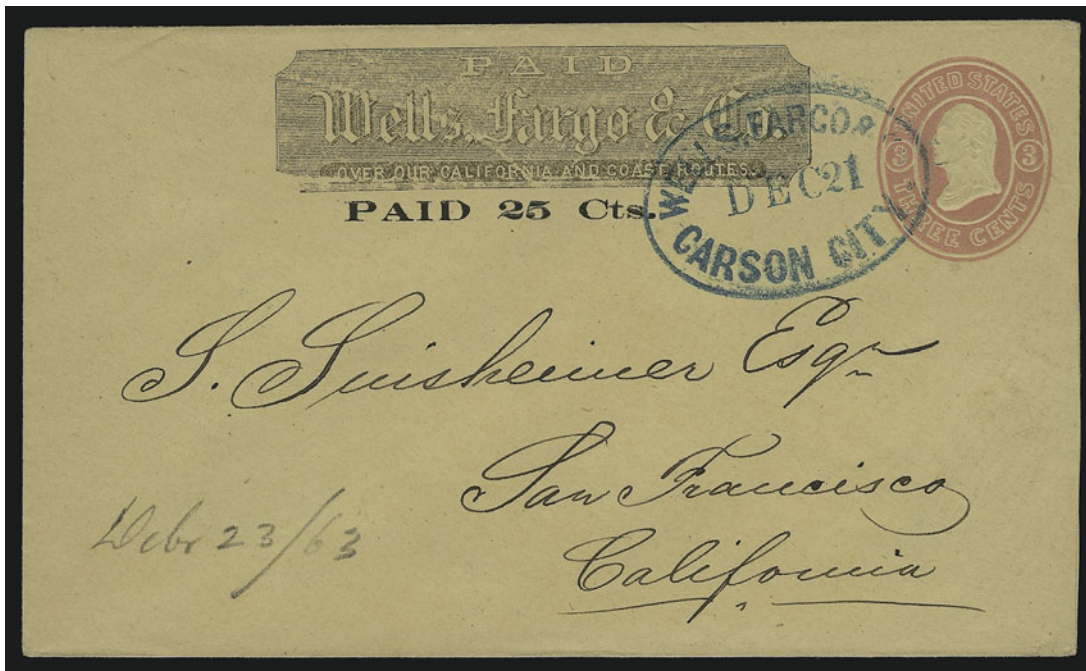 PAID
Wells, Fargo & Co.
OVER OUR CALIFORNIA AND COAST ROUTES.
PAID 25 Cts.
WELLS, FARGO &
DEC 21
CARSON CITY.
UNITED STATES
3 3
THREE CENTS
S. Suisheimer Esqr
San Francisco
California
Decbr 23/63